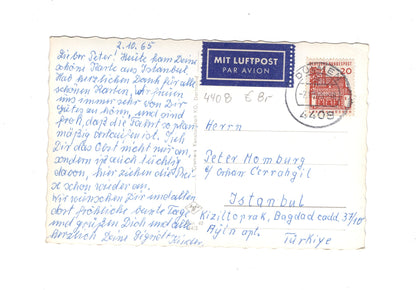 2.10.65
Lieber Peter! Heute kam Deine
schöne Karte aus Istanbul.
Hab herzlichen Dank für alle
schönen Karten, wir freuen
uns immer sehr von Dir
Gutes zu hören, und sind
froh, daß die Fahrt so plan-
mäßig verlaufen ist.
Dir das Geld nicht nur an,
sondern ist auch tüchtig
davon, hier ziehen die Prei-
se schon wieder an.
Wir wünschen Dir und allen
dort fröhliche bunte Tage
und grüßen Dich und alle
herzlich Deine
Kinder
MIT LUFTPOST
PAR AVION
4408 € 8,-
DEUTSCHE BUNDESPOST
20
4408
Herrn
Peter Homburg
c/o Orhan Cerrahgil
Istanbul
Kiziltoprak, Bagdad cadd. 37/10
Aytn apt.
Türkiye